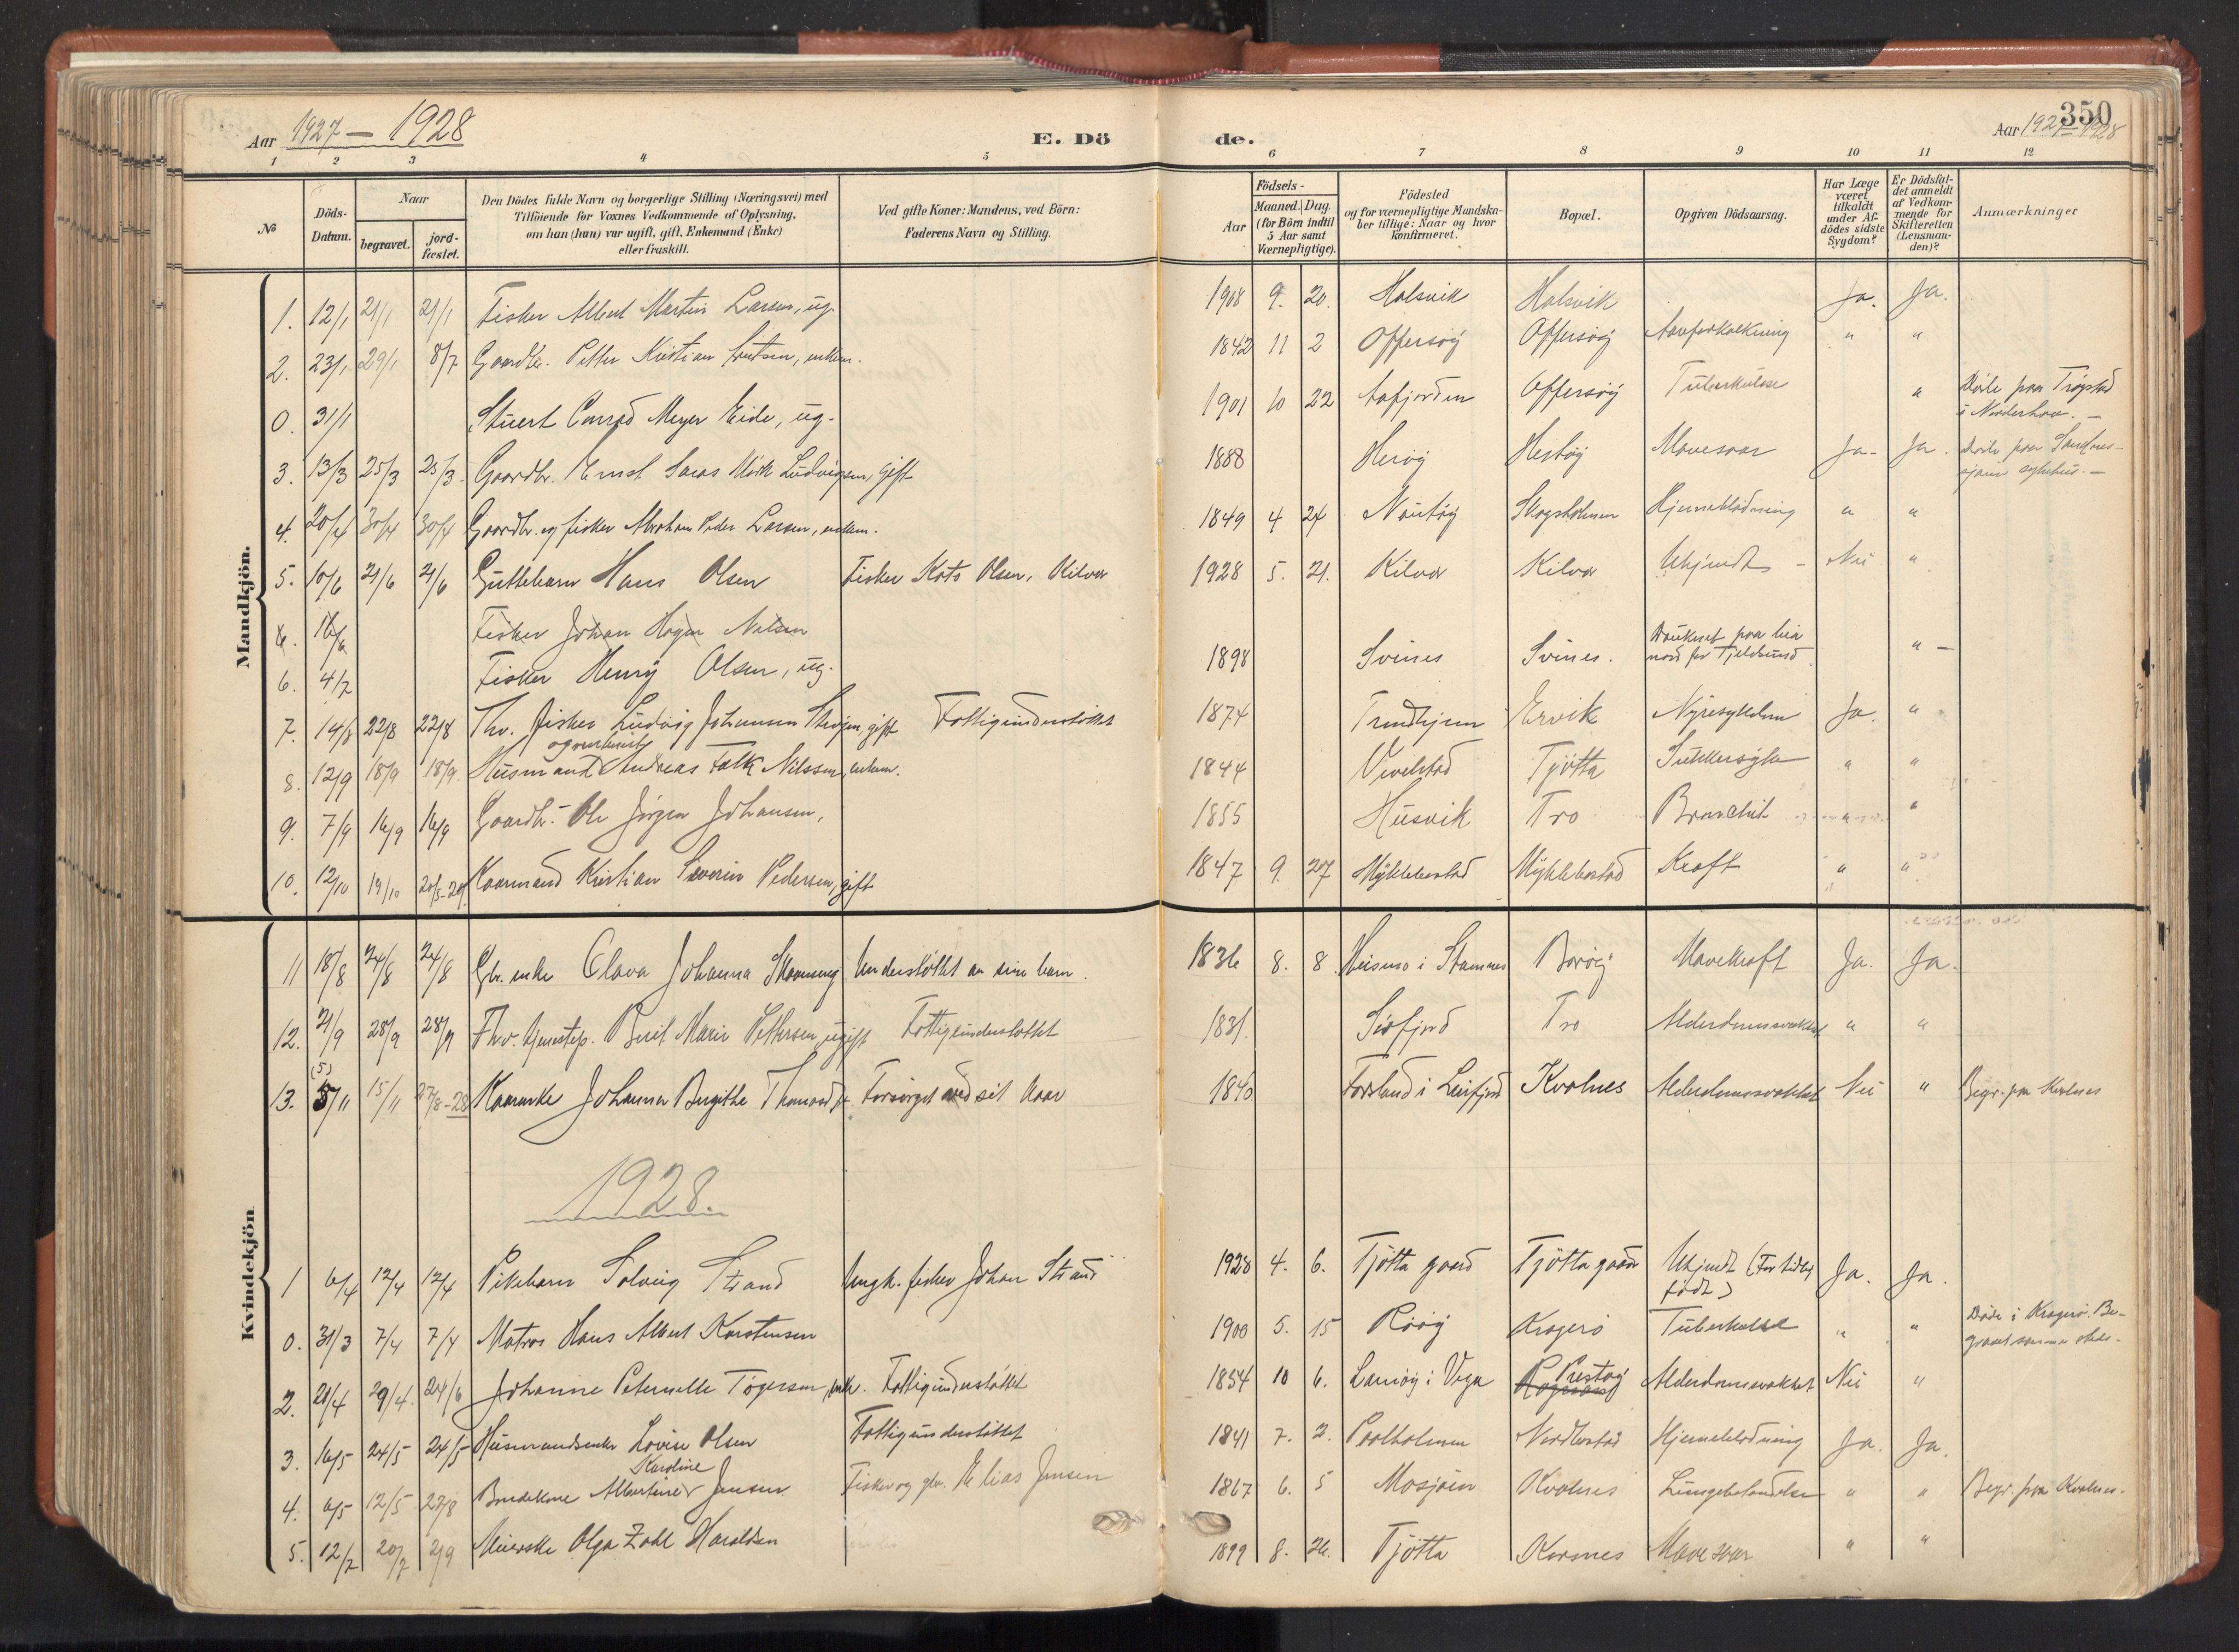 350
Aar 1927 — 1928
E. Dö
de.
Aar 1927 – 1928
1 2 3 4 5 6 7 8 9 10 11 12
№
Döds-Datum.
Naar
begravet.
jord-fæstet.
Den Dödes fulde Navn og borgerlige Stilling (Næringsvei) med
Tilföiende for Voxnes Vedkommende af Oplysning,
om han (hun) var ugift, gift, Enkemand (Enke)
eller fraskilt.
Ved gifte Koner: Mandens, ved Börn:
Faderens Navn og Stilling.
Födsels-
Aar
Maaned. Dag.
(for Börn indtil
5 Aar samt
Værnepligtige).
Födested
og for værnepligtige Mandska-
ber tillige: Naar og hvor
konfirmeret.
Bopæl.
Opgiven Dödsaarsag.
Har Læge
været
tilkaldt
under Af-
dödes sidste
Sygdom?
Er Dödsfal-
det anmeldt
af Vedkom-
mende for
Skifteretten
(Lensman-
den)?
Anmærkninger
Mandkjön.
1. 12/1 21/1 21/1 Fisker Albert Martin Larsen, ug. 1908 9. 20. Halsvik Halsvik Ja. Ja.
2. 23/1 29/1 8/7 Gaardbr. Petter Kristian, enkem. 1842 11 2 Offersøy Offersøy Aareforkalkning " "
0. 31/1 Stuert Conrad Meyer Eide, ug. 1901 10 22 Aafjorden Offersøy Tuberkulose " Døde paa Trøgstad
i Norderhov. —
3. 13/3 25/3 25/3 Gaardbr. Ernst Ludvigsen, gift 1888 Herøy Hestøy Mavesaar Ja. Ja. Døde paa Sandnes-
sjøen sykehus. —
4. 20/4 30/4 30/4 Gaardbr. og fisker Abraham Peder Larsen, enkem. 1849 4 24 Skogsholmen Hjerneblødning " "
5. 10/6 21/6 21/6 Guttebarn Hans Olsen Fisker Kato Olsen, Kilvær 1928 5. 21. Kilvær Kilvær Ukjendt – Nei "
6. 16/6 Fisker Johan Nilsen
6. 4/7 Fisker Henry Olsen, ug. 1898 Svines Svines. Druknet paa leia
nord for Tjeldsund " —
7. 14/8 22/8 22/8 Fhv. fisker Ludvig Johansen, gift Fattigunderstøttet 1874 Trondhjem Ervik Nyresykdom Ja. "
8. 12/9 18/9 18/9 Husmand Andreas Falk Nilssen, enkem. 1844 Vevelstad Tjøtta Sukkersyke " "
9. 7/9 16/9 16/9 Gaardbr. Ole Jørgen Johansen, 1855 Husvik Tro Bronchit " "
10. 12/10 19/10 20/5-29 Kaarmand Kristian Severin Pedersen, gift 1847 9. 27 Myklebostad Myklebostad Kræft " "
Kvindekjön
11 18/8 24/8 24/8 Gbr. enke Olava Johanna Understøttet av sine barn. 1836 8. 8. Husmo i Stamnes Borøy Mavekræft Ja. Ja.
12. 21/9 28/9 28/9 Fhv. tjenestep. Berit Marie Pettersen, ugift Fattigunderstøttet 1831. Tro Alderdomssvækket " "
13. (5) 5/11 15/11 27/8-28 Kaarenke Johanna Birgithe Forsørget ved sit kaar 1840 Forsland i Leirfjord Kvalnes Alderdomssvækket Nei " Begr. paa Kvalnes
1928.
1 6/4 12/4 12/4 Pikebarn Solveig Strand Ungk. fisker Johan Strand 1928 4. 6. Tjøtta gaard Tjøtta gaard Ukjendt (For tidlig
født) Ja. Ja.
0. 31/3 7/4 7/4 Matros Hans Albert Karstensen 1900 5. 15 Røøy Kragerø Tuberkulose " " Døde i Kragerø. Be-
gravet samme sted.
2. 21/4 29/4. 24/6 Johanne Peternelle Tøgersen, enke. Fattigunderstøttet 1854 10 6. Lamøy i Vega Prestøy Alderdomssvækket Nei "
3. 16/5 24/5 24/5 Husmandsenke Lovise Olsen Fattigunderstøttet 1841 7. 2. Nordbostad Hjerneblødning Ja. Ja.
Karoline
4. 6/5 12/5 27/8 Bondekone Albertine Jensen Fisker og gbr. Elias Jensen 1867 6. 5 Mosjøen Kvalnes Lungebetændelse " " Begr. paa Kvalnes.
5. 12/7 20/7 2/9 Meierske Olga Zahl Haraldsen 1899 8. 26. Tjøtta Kornes Mavesaar " "